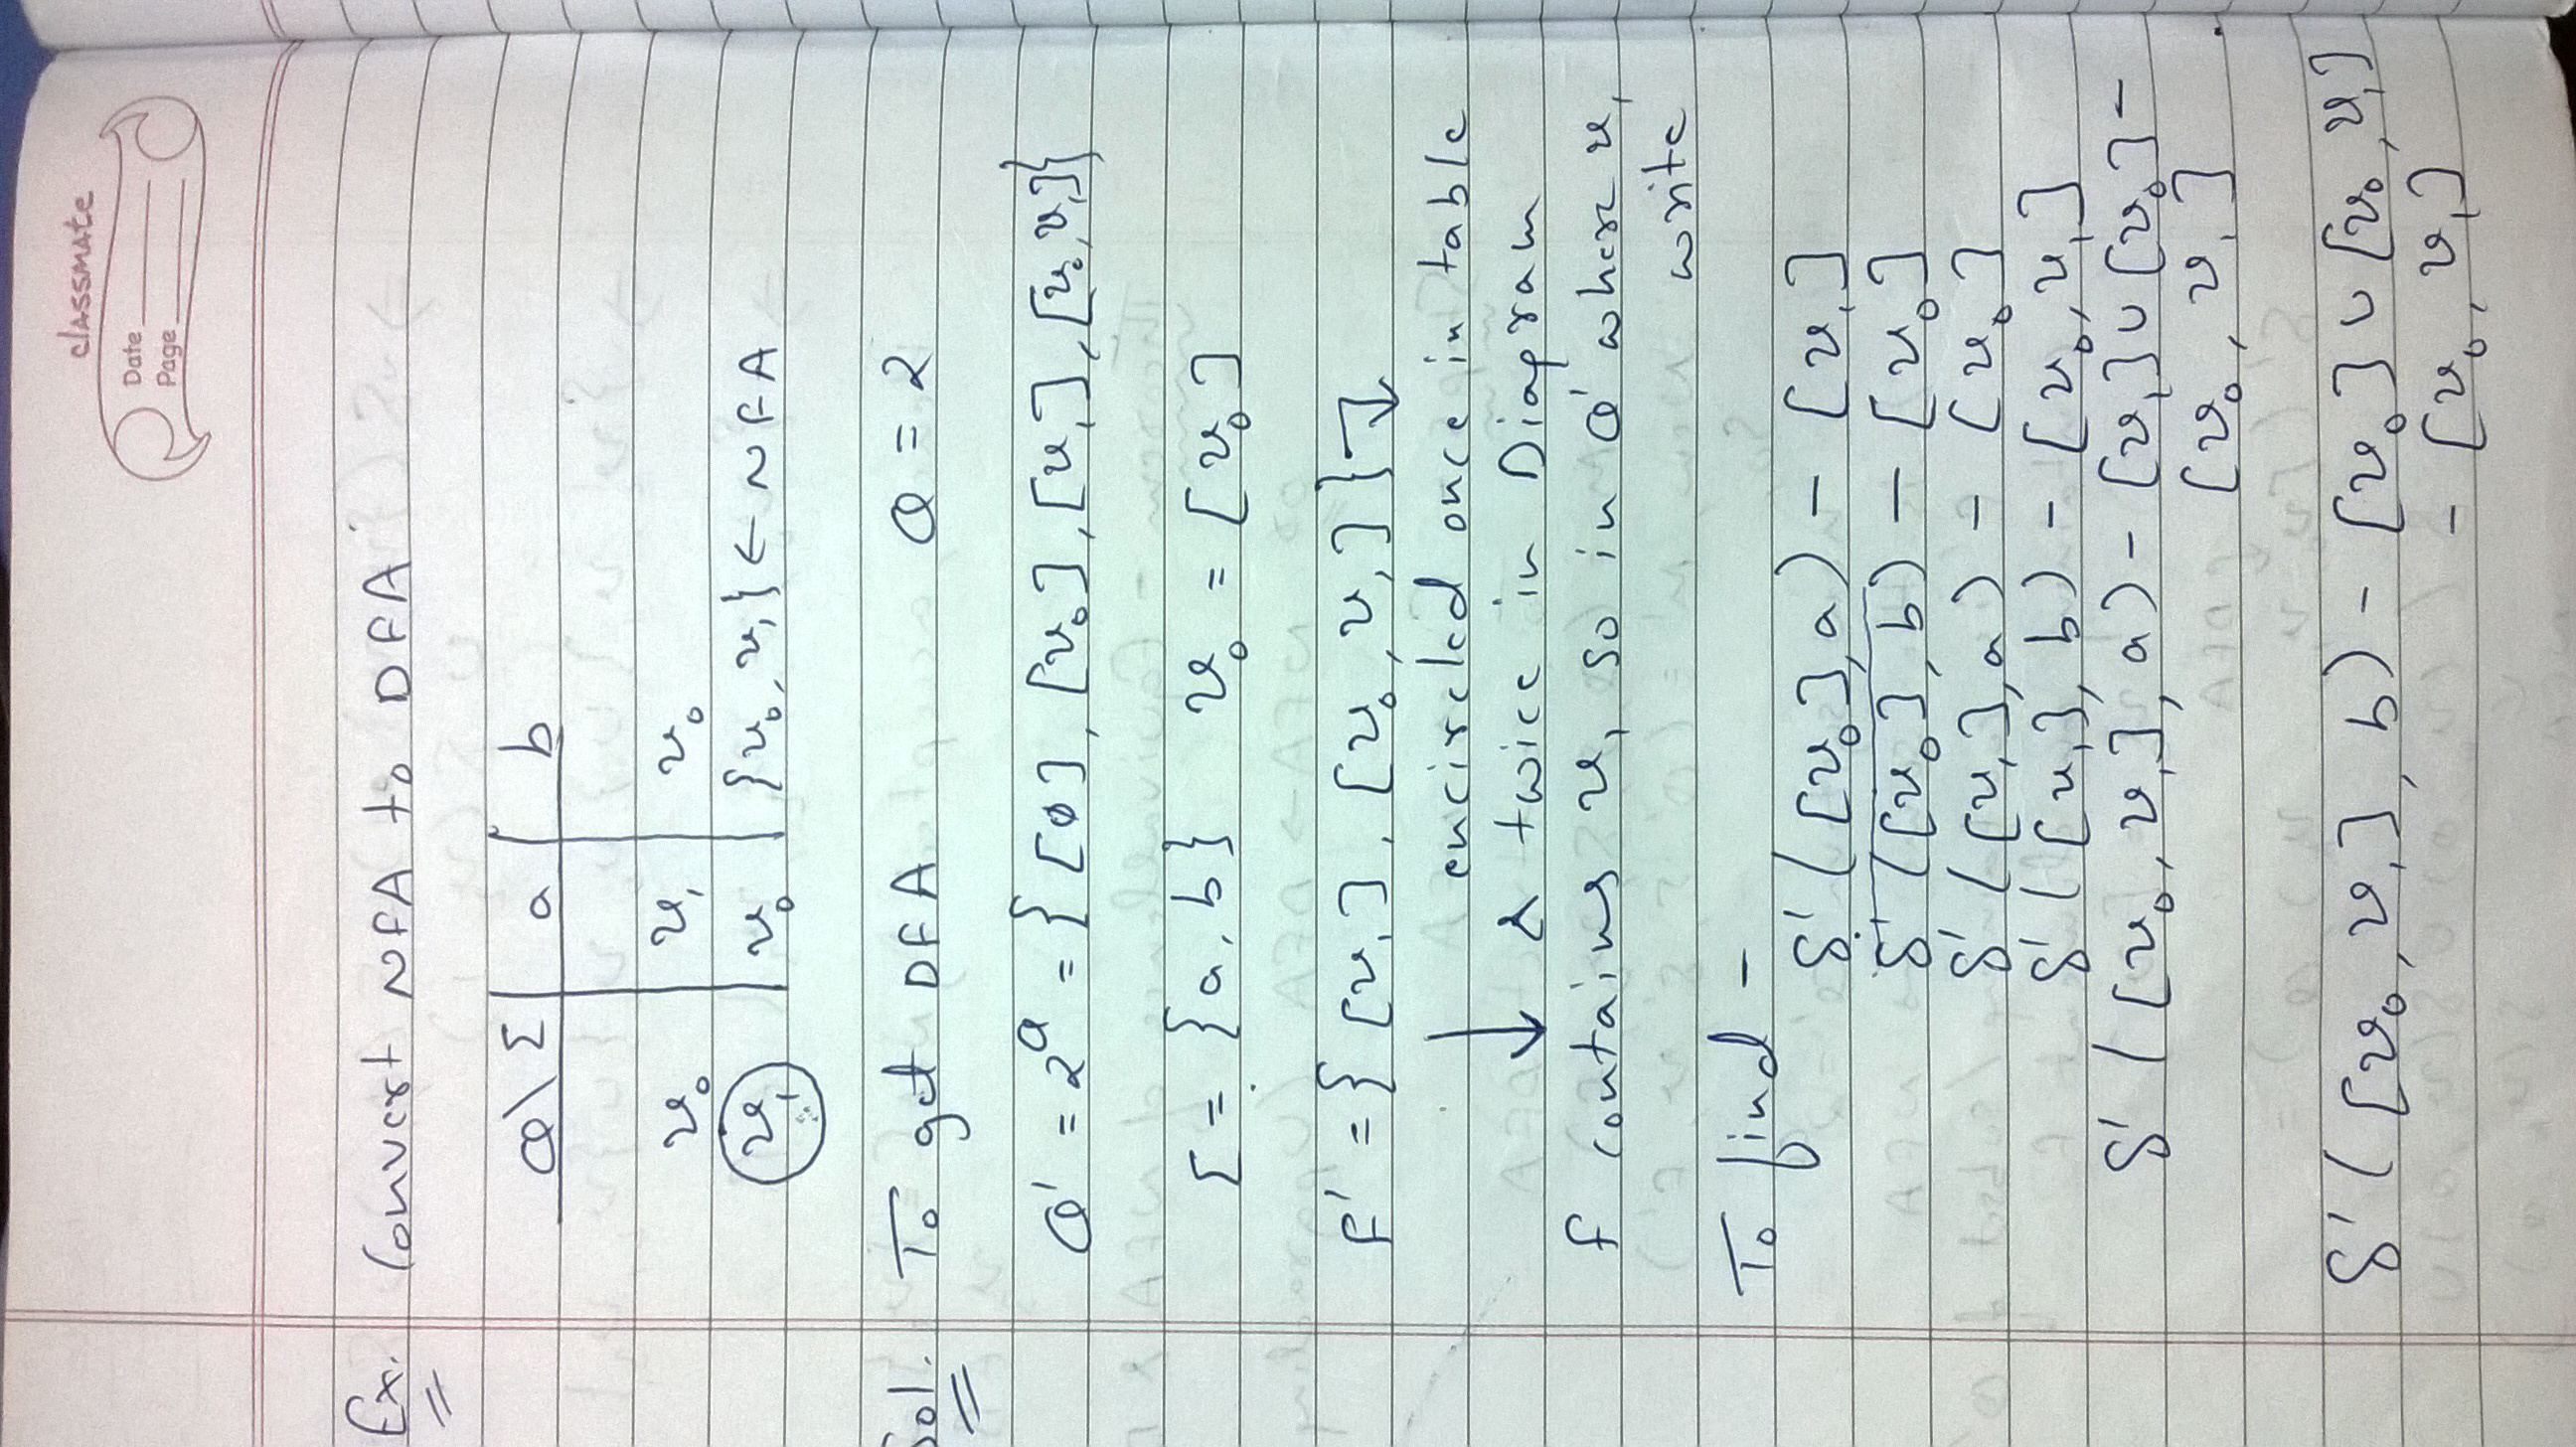 classmate
Date
Page
Ex. Convert NFA to DFA
Q\Σ | a | b
v₀ | v₁ | v₀
v₁ | v₀ | {v₀, v₁} ← NFA
Sol. To get DFA Q = 2
Q' = 2^Q = { [ϕ], [v₀], [v₁], [v₀, v₁]}
Σ = {a, b} v₀ = [v₀]
F' = { [v₁], [v₀, v₁] }
encircled once in table
& twice in Diagram
F contains v₁ so in Q' where v₁
write
To find -
δ' ([v₀], a) - [v₁]
δ' ([v₀], b) - [v₀]
δ' ([v₁], a) - [v₀]
δ' ([v₁], b) - [v₀, v₁]
δ' ([v₀, v₁], a) - [v₁] ∪ [v₀] -
[v₀, v₁]
δ' ([v₀, v₁], b) - [v₀] ∪ [v₀, v₁]
- [v₀, v₁]